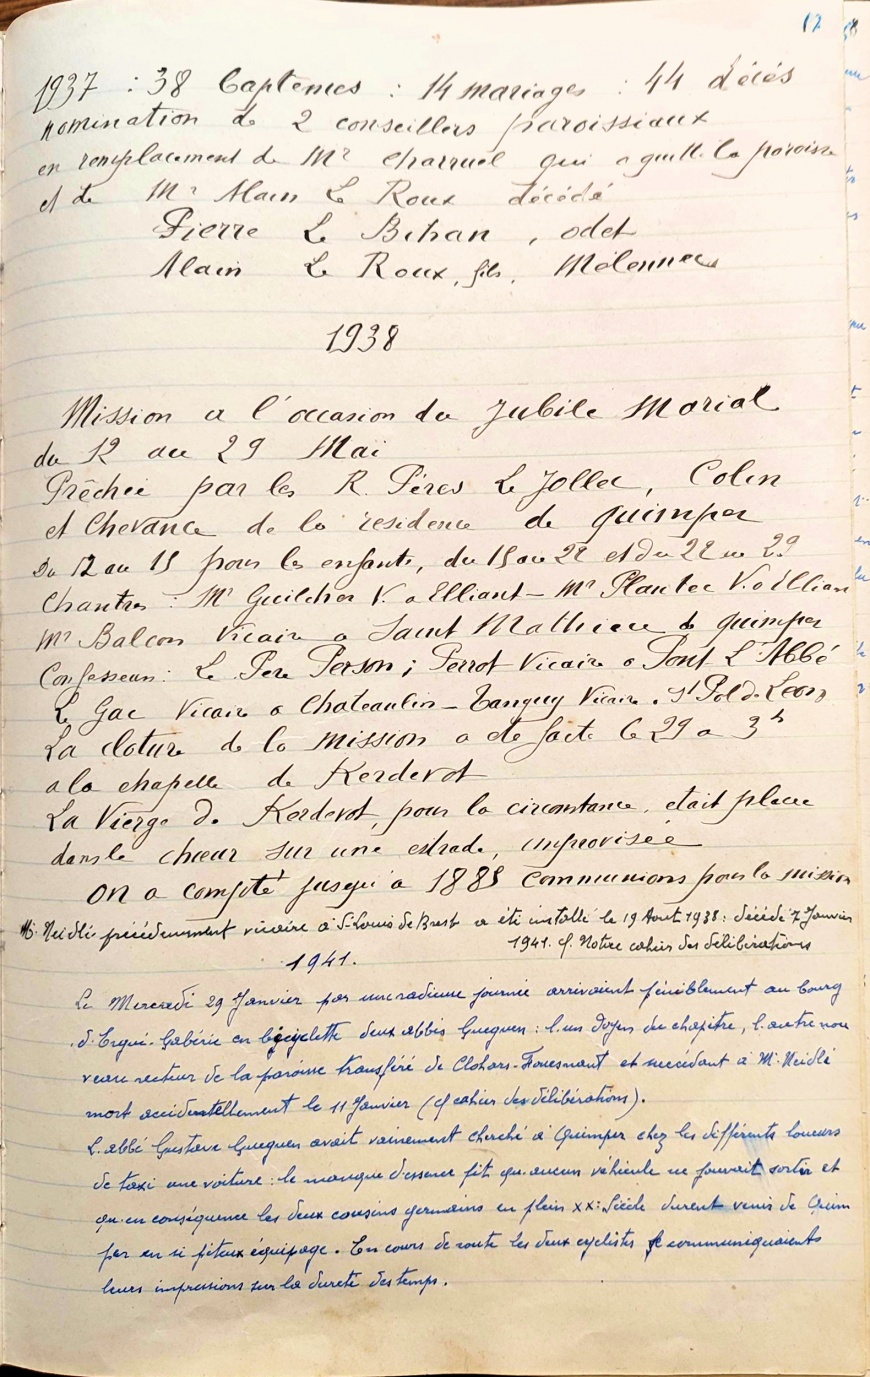 17
1937 : 38 baptemes : 14 mariages : 44 décés
nomination de 2 conseillers paroissiaux
en remplacement de Mr Charruel qui a quitté la paroisse
et de Mr Alain Le Roux décédé
Pierre Le Bihan, odet
Alain Le Roux, fils, Mélennec
1938
Mission a l'occasion du Jubile Marial
du 12 au 29 Mai
Prêchée par les R. Péres Le Jollec, Colin
et Chevance de la résidence de Quimper
Du 12 au 15 pour les enfants, du 15 au 22 et du 22 au 29
Chantres : Mr Guilcher V. a Elliant - Mr Plantec V. a Elliant
Mr Balcon Vicaire a Saint Mathieu de Quimper
Confesseurs : Le Pere Person ; Perrot Vicaire a Pont L'Abbé
Le Gac Vicaire a Chateaulin - Tanguy Vicaire a St Pol de Leon
La cloture de la mission a eté faite le 29 a 3h
a la chapelle de Kerdevot
La Vierge de Kerdevot, pour la circonstance, etait placee
dans le chœur sur une estrade, improvisée
On a compté jusqu'a 1885 communions pour la mission
M. Neidlé précédemment vicaire à St-Louis de Brest a été installé le 19 Aout 1938 : décédé 7 Janvier
1941. cf. Notice cahier des délibérations
1941.
Le Mercredi 29 Janvier par une radieuse journée arrivaient péniblement au bourg
d'Ergué-Gabéric en bicyclette deux abbés Gueguen : l'un doyen du chapitre, l'autre nou
veau recteur de la paroisse transféré de Clohars-Fouesnant et succédant à M. Neidlé
mort accidentellement le 11 Janvier (cf cahier des délibérations).
L'abbé Gustave Gueguen avait vainement cherché à Quimper chez les différents loueurs
de taxi une voiture : le manque d'essence fit qu'aucun véhicule ne pouvait sortir et
qu'en conséquence les deux cousins germains en plein XX: Siècle durent venir de Quim
per en si piteux équipage. En cours de route les deux cyclistes se communiquaient
leurs impressions sur la dureté des temps.